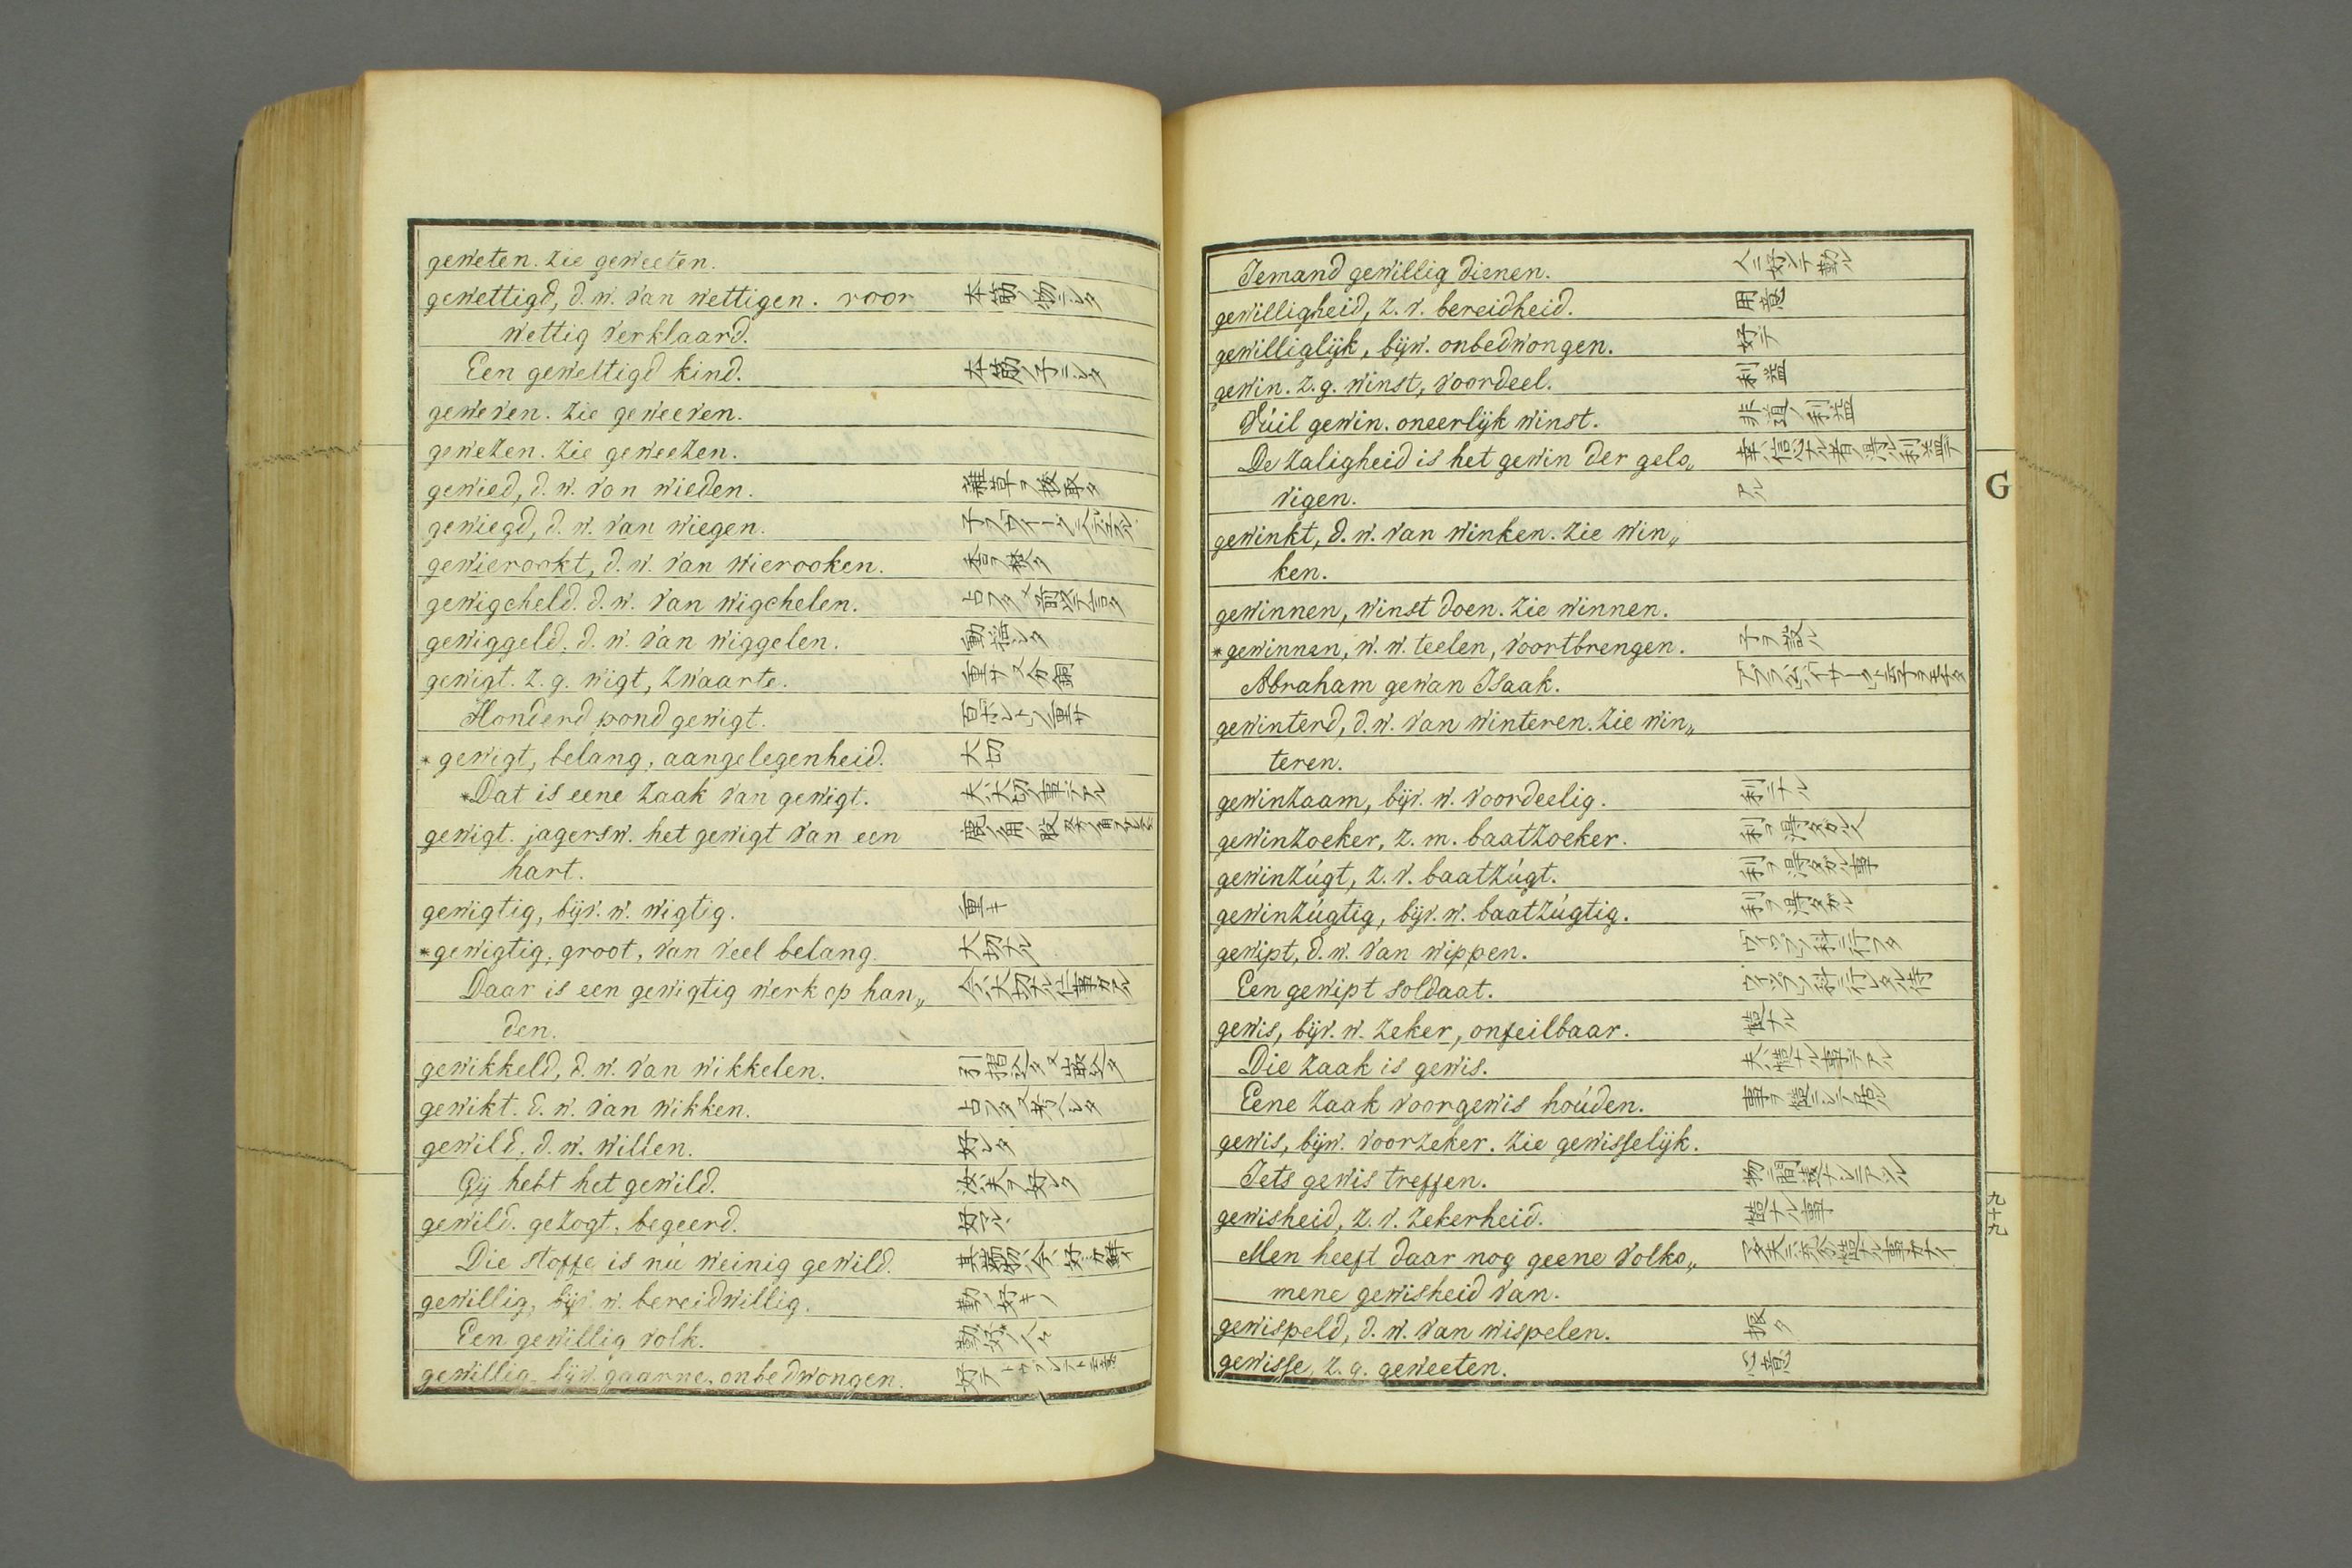 geweten. zie geweeten.
gewettigd, d. w. van wettigen. voor 本筋ノ物ニシタ
wettig verklaard.
Een gewettigd kind. 本筋ノ子ニシタ
geweven. zie geweeven.
gewezen. zie geweezen.
gewied, d. w. van wieden. 雜草ヲ抜取タ
gewiegd, d. w. van wiegen.
gewierookt, d. w. van wierooken. 香ヲ焼タ
gewigcheld. d. w. van wigchelen.
gewiggeld, d. w. van wiggelen. 動揺シタ
gewigt. z. g. wigt, zwaarte. 重サ又分銅
Honderd pond gewigt. 百ポンドノ重サ
*gewigt, belang, aangelegenheid. 大切
*Dat is eene zaak van gewigt. 夫ハ大切ノ事テアル
gewigt. jagersw. het gewigt van een 鹿ノ角ノ股
hart.
gewigtig, bijv. w. wigtig. 重キ
*gewigtig, groot, van veel belang. 大切ナル
Daar is een gewigtig werk op han„ 今ハ大切ナル仕事ガアル
den.
gewikkeld, d. w. van wikkelen.
gewikt. d. w. van wikken.
gewild, d. w. willen. 好シタ
Gij hebt het gewild. 汝ハ夫ヲ好シタ
gewild. gezogt, begeerd.
Die stoffe is nú weinig gewild.
gewillig, bijv. w. bereidwillig.
Een gewillig volk.
gewillig. bijv. gaarne, onbedwongen. 好テ
Iemand gewillig dienen. 人ニ好ンテ勤ル
gewilligheid, z. v. bereidheid. 用意
gewilliglijk, bijw. onbedwongen. 好テ
gewin. z. g. winst, voordeel. 利益
Vúil gewin. oneerlijk winst. 非道ノ利益
De zaligheid is het gewin der gelo„ 幸ハ信心ナル者ノ得ル利益テ
vigen. アル
gewinkt, d. w. van winken. zie win„
ken.
gewinnen, winst doen. zie winnen.
*gewinnen, w. w. teelen, voortbrengen. 子ヲ設ル
Abraham gewan Isaak.
gewinterd, d. w. van winteren. zie win„
teren.
gewinzaam, bijv. w. voordeelig. 利ニナル
gewinzoeker, z. m. baatzoeker. 利ヲ得タガル人
gewinzúgt, z. v. baatzúgt. 利ヲ得タガル事
gewinzúgtig, bijv. w. baatzúgtig. 利ヲ得タガル
gewipt, d. w. van wippen.
Een gewipt soldaat.
gewis, bijv. w. zeker, onfeilbaar. 慥ナル
Die zaak is gewis. 夫ハ慥ナル事テアル
Eene zaak voor gewis hoúden. 事ヲ慥ニシテ居ル
gewis, bijw. voorzeker. zie gewisselijk.
Iets gewis treffen.
gewisheid, z. v. zekerheid. 慥ナル事
Men heeft daar nog geene volko„
mene gewisheid van.
gewispeld, d. w. van wispelen. 振タ
gewisse, z. g. geweeten. 心意
G
九十九